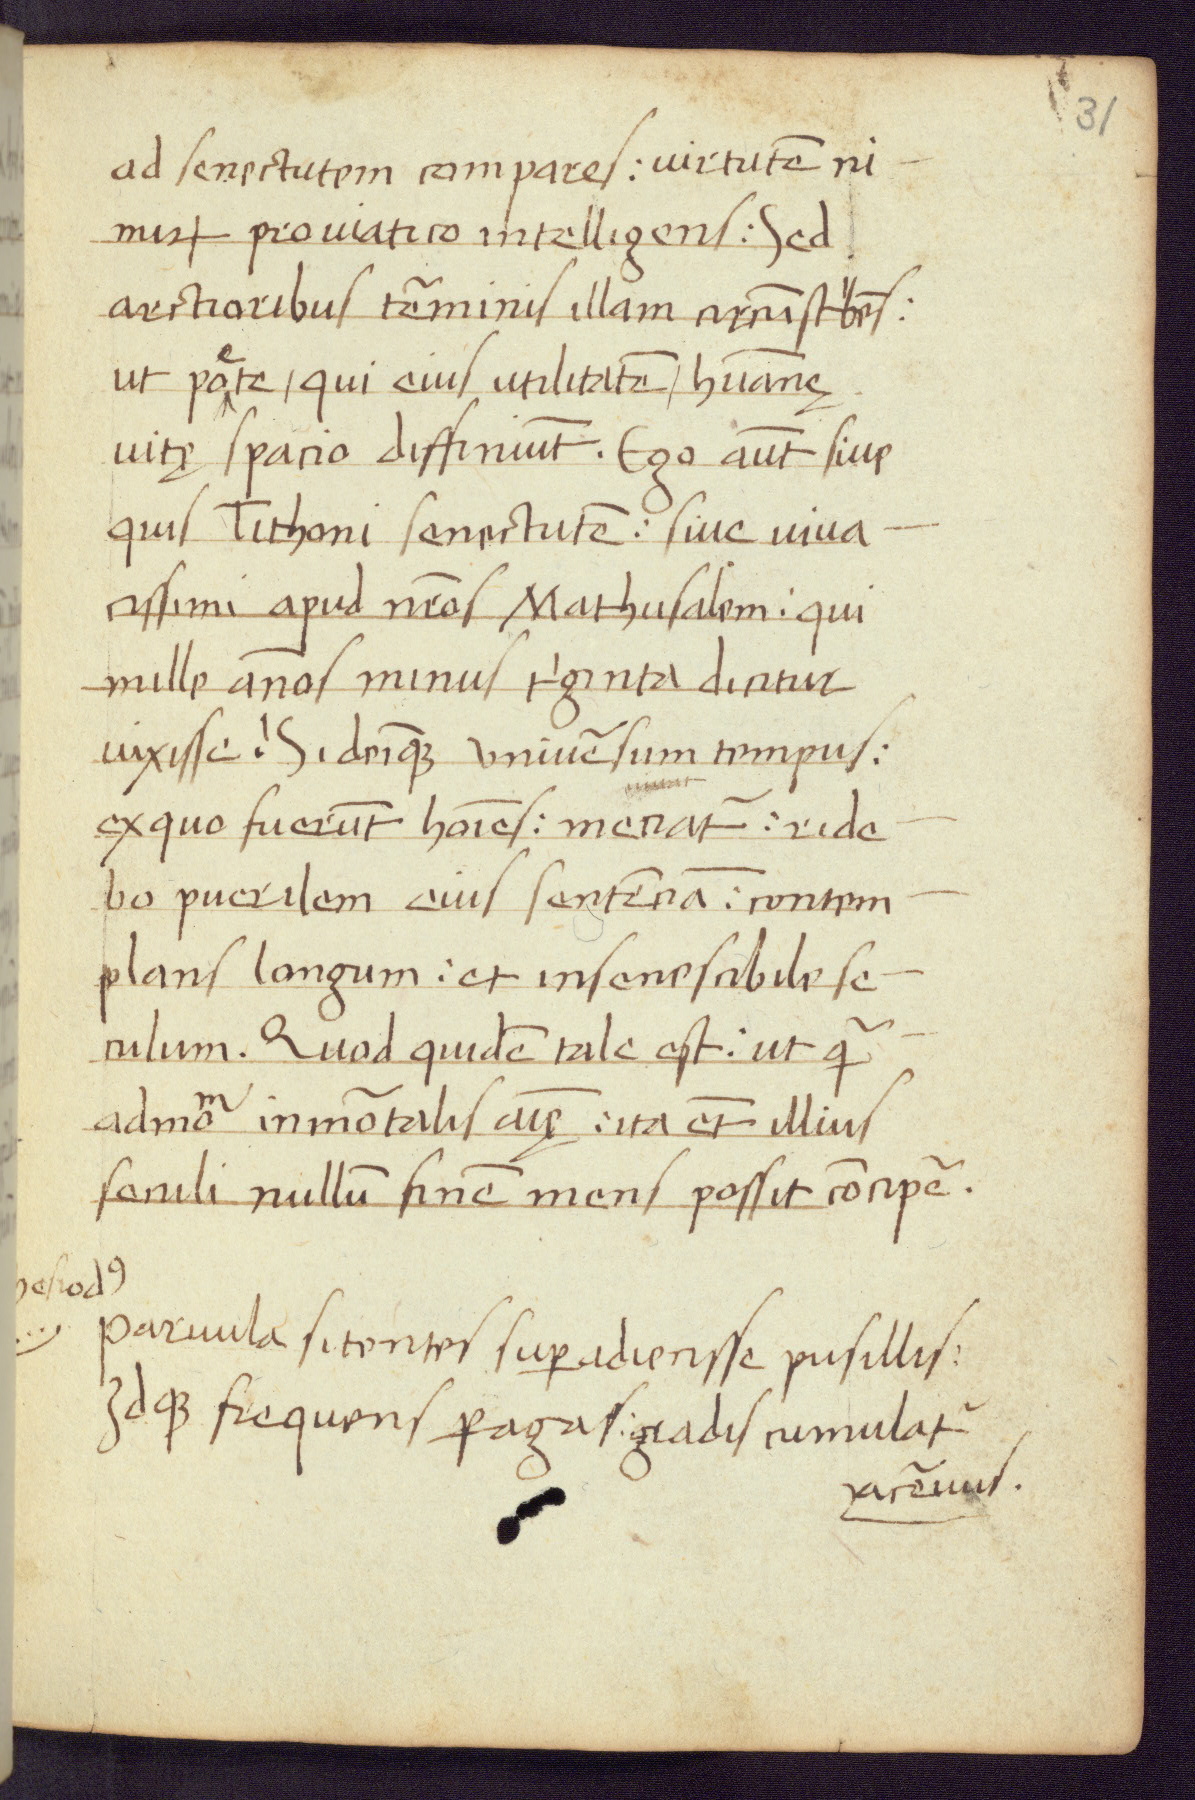 31
ad senectutem compares: uirtutē ni-
mirū pro uiatico intelligens: Sed
arctioribus tēminis illam circūscribēs:
ut poete, qui eius utilitatē, hūanę
uitę spacio diffiniūt. Ego aūt siue
quis Tithoni senectutē: siue uiua-
cissimi apud nr̄os Mathusalem: qui
mille an̄os minus tⁱginta dicitur
uixisse: Si deiq̄ꝫ vniuēsum tempus:
ex quo fuerūt hoīes: metiat̄: ride-
bo puerilem eius sentēciā: contem-
plans longum: et insenescibile se-
culum. Quod quidē tale est: ut q̄-
admoᵐ inmōtalis aīę: ita et̄ illius
seculi nullū finē mens possit cōcipē.
hesiodꝰ
Paruula si tentes suꝑadiecisse pusillis:
Idqꝫ frequens ꝑagas: gͣdis cumulat̄
acēuus.